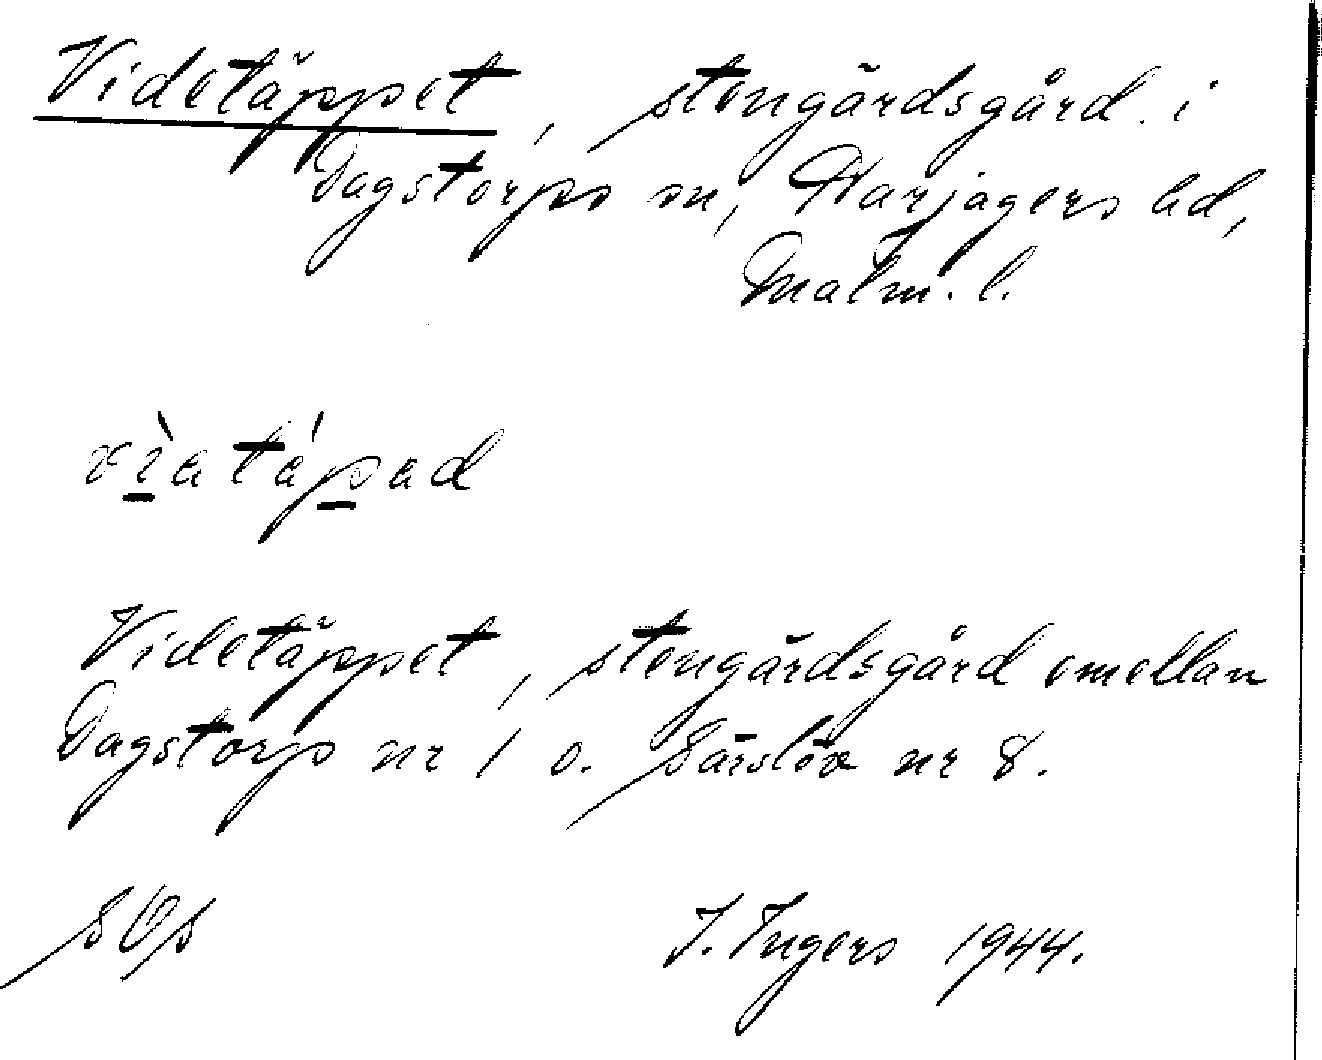 Videtäppet, stengärdsgård i
Dagstorps sn, Harjagers hd,
Malm. l.
Videtäppet, stengärdsgård emellan
Dagstorp nr 1 o. Särslöv nr 8.
SOS J. Ingers 1944.